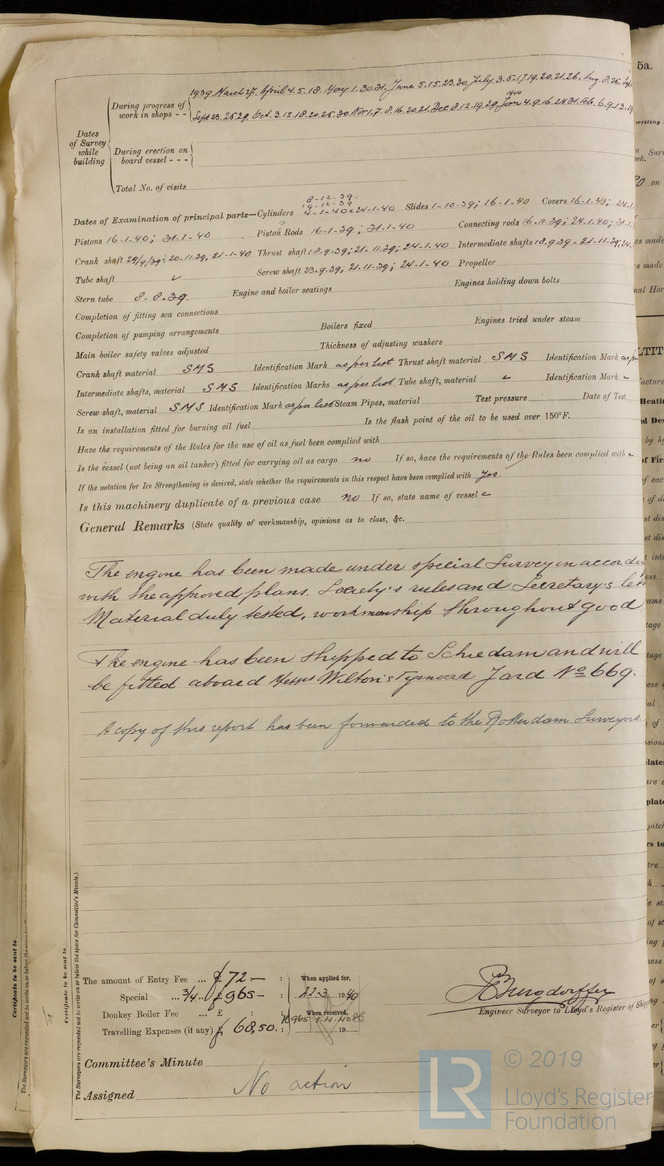 1939 March 27. April 4.5.18. May 1.30.31. June 5.15.23.30 July 3.5.17.19.20.21.26. Aug 8.25.
During progress of work in shops - -
Sept 23.25.29. Oct. 3.12.18.20.25.30 Nov 1.7.8.16.20.21. Dec 8.12.19.29. Jan 4.9.16.24.31. Feb. 6.9.13.
Dates of Survey while building
During erection on board vessel - - -
Total No. of visits
8-12-39
19-12-39
Dates of Examination of principal parts—Cylinders 4-1-40; 24-1-40 Slides 1-10-39; 16-1-40 Covers 16-1-40; 24.1
Pistons 16-1-40; 31-1-40 Piston Rods 16-1-39; 31-1-40 Connecting rods 16-11-39; 24-1-40; 31.1
Crank shaft 29/9/39; 20.11.39; 24-1-40 Thrust shaft 18.9.39; 21.11.39; 24-1-40 Intermediate shafts 18.9.39 - 21.11.39; 24.
Tube shaft Screw shaft 23.9.39; 21-11-39; 24-1-40 Propeller
Stern tube 8-8-39. Engine and boiler seatings Engines holding down bolts
Completion of fitting sea connections
Completion of pumping arrangements Boilers fixed Engines tried under steam
Main boiler safety valves adjusted Thickness of adjusting washers
Crank shaft material SMS Identification Mark as per list Thrust shaft material SMS Identification Mark as per
Intermediate shafts, material SMS Identification Marks as per list Tube shaft, material Identification Mark
Screw shaft, material SMS Identification Mark as per list Steam Pipes, material Test pressure Date of Test
Is an installation fitted for burning oil fuel Is the flash point of the oil to be used over 150°F.
Have the requirements of the Rules for the use of oil as fuel been complied with
Is the vessel (not being an oil tanker) fitted for carrying oil as cargo no If so, have the requirements of the Rules been complied with
If the notation for Ice Strengthening is desired, state whether the requirements in this respect have been complied with Yes
Is this machinery duplicate of a previous case no If so, state name of vessel
General Remarks (State quality of workmanship, opinions as to class, &c.
The engine has been made under special Survey in accord
with the approved plans. Society's rules and Secretary's let
Material duly tested, workmanship throughout good
The engine has been shipped to Schiedam and will
be fitted aboard Messrs Wilton's Fijenoord Yard No 669.
A copy of this report has been forwarded to the Rotterdam Surveyors
Certificate to be sent to
The Surveyors are requested not to write on or below the space for Committee's Minute.)
The amount of Entry Fee ... £ 72 — : When applied for,
Special ... 3/4 .. £ 965 — : 22.3. 1940
Donkey Boiler Fee ... £ : When received,
Travelling Expenses (if any) £ 68,50. : 19
Engineer Surveyor to Lloyd's Register of Ship
Committee's Minute
Assigned No action
LR © 2019
Lloyd's Register
Foundation